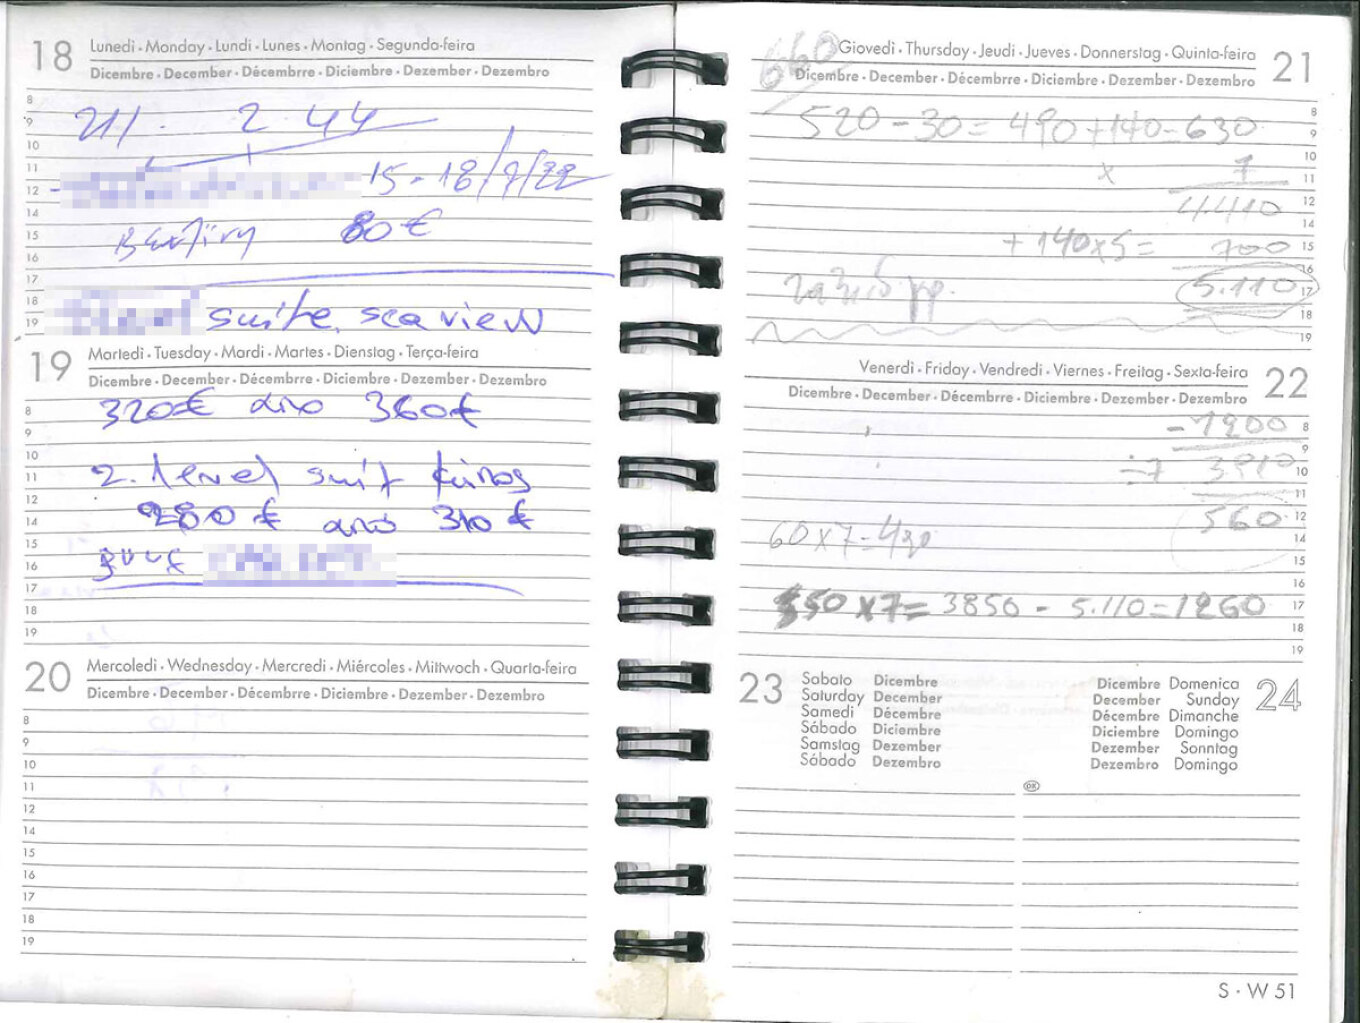 18 Lunedì · Monday · Lundi · Lunes · Montag · Segunda-feira
Dicembre · December · Décembrre · Diciembre · Dezember · Dezembro
8
9 211. 2 44
10
11
12 15-18/9/22
14
15 80 €
16
17
18
19 suite sea view
19 Martedì · Tuesday · Mardi · Martes · Dienstag · Terça-feira
Dicembre · December · Décembrre · Diciembre · Dezember · Dezembro
8 320€ ano 360€
9
10
11 2. level suit
12
14 280 € ano 310 €
15
16
17
18
19
20 Mercoledì · Wednesday · Mercredi · Miércoles · Mittwoch · Quarta-feira
Dicembre · December · Décembrre · Diciembre · Dezember · Dezembro
8
9
10
11
12
14
15
16
17
18
19
660 Giovedì · Thursday · Jeudi · Jueves · Donnerstag · Quinta-feira 21
Dicembre · December · Décembrre · Diciembre · Dezember · Dezembro
8
520 - 30 = 490 + 140 = 630 9
10
x 7 11
4.410 12
14
+ 140x5 = 700 15
16
5.110 17
18
19
Venerdì · Friday · Vendredi · Viernes · Freitag · Sexta-feira 22
Dicembre · December · Décembrre · Diciembre · Dezember · Dezembro
-1200 8
9
÷7 3910 10
11
560 12
60x7=420 14
15
16
550 x7= 3850 - 5.110=1260 17
18
19
23 Sabato Dicembre
Saturday December
Samedi Décembre
Sábado Diciembre
Samstag Dezember
Sábado Dezembro
Dicembre Domenica 24
December Sunday
Décembre Dimanche
Diciembre Domingo
Dezember Sonntag
Dezembro Domingo
S · W 51